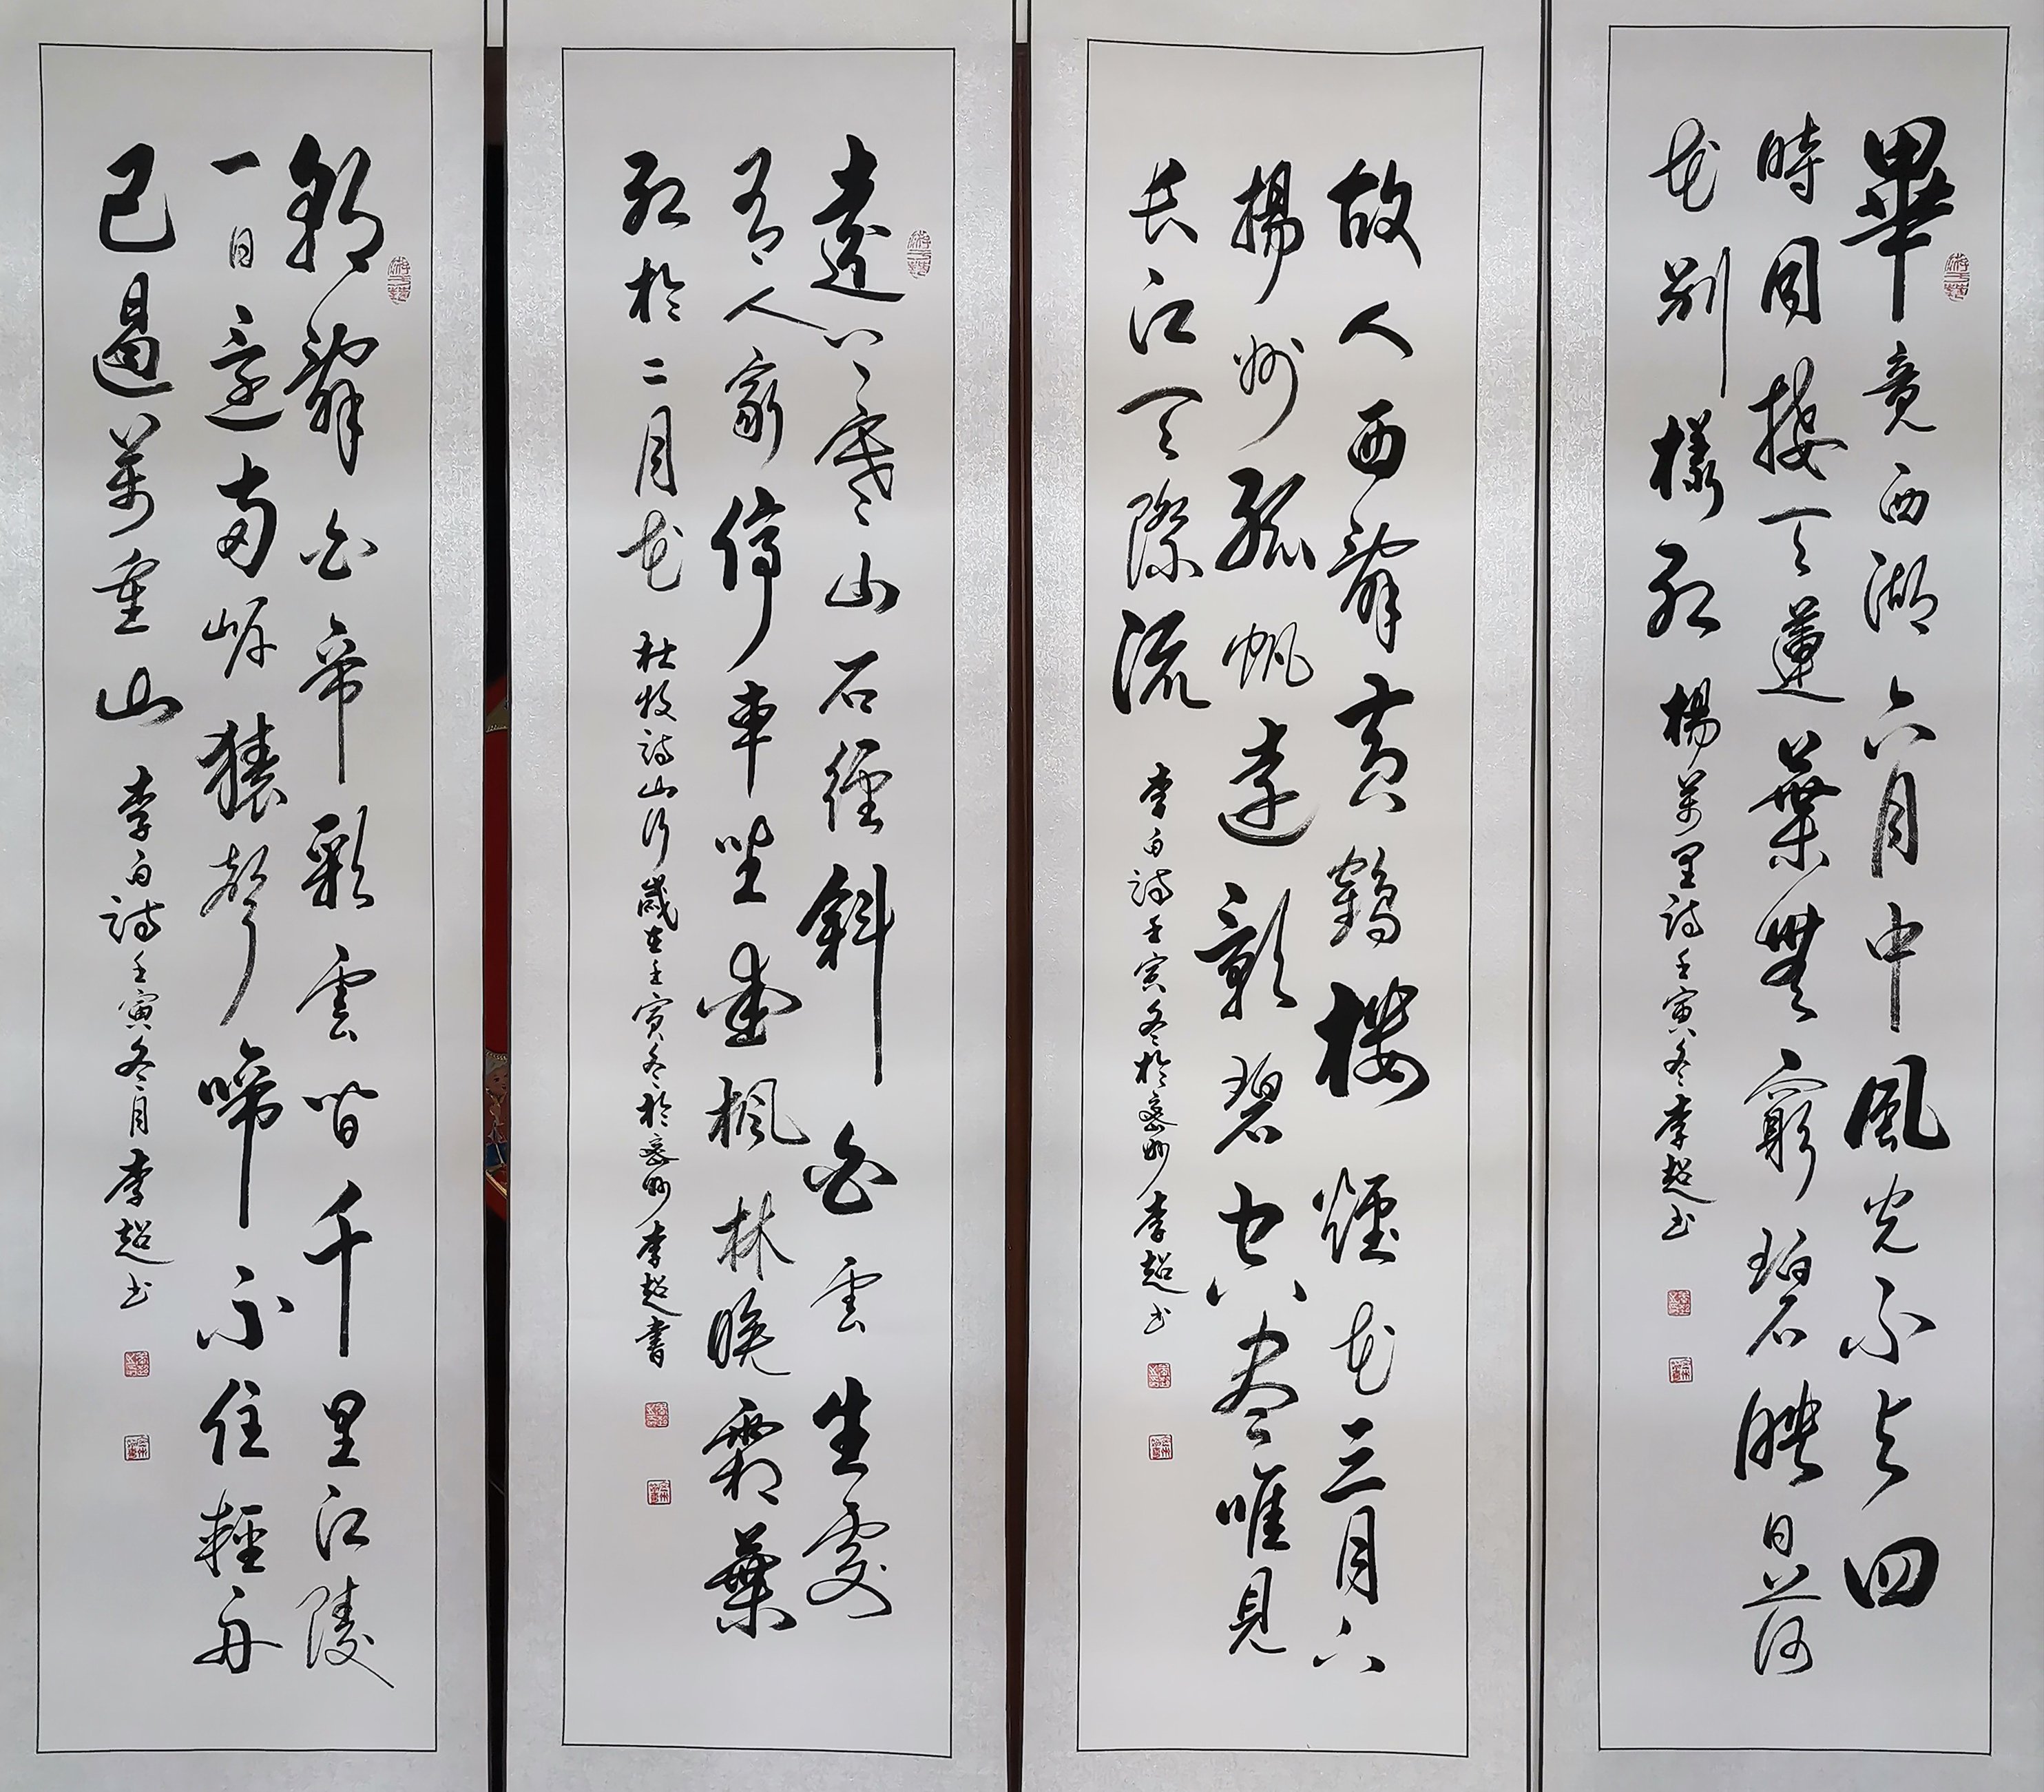 畢竟西湖六月中風光不与四
時同接天蓮葉無窮碧映日荷
花别樣紅 楊萬里詩壬寅冬李超书
故人西辭黄鶴樓煙花三月下
揚州孤帆遠影碧空尽唯見
长江天際流 李白詩壬寅冬於密州李超书
遠上寒山石徑斜白雲生處
有人家停車坐愛楓林晚霜葉
紅於二月花 杜牧詩山行歲在壬寅冬於密州李超書
朝辭白帝彩雲間千里江陵
一日還兩岸猿聲啼不住輕舟
已過萬重山 李白詩壬寅冬月李超书